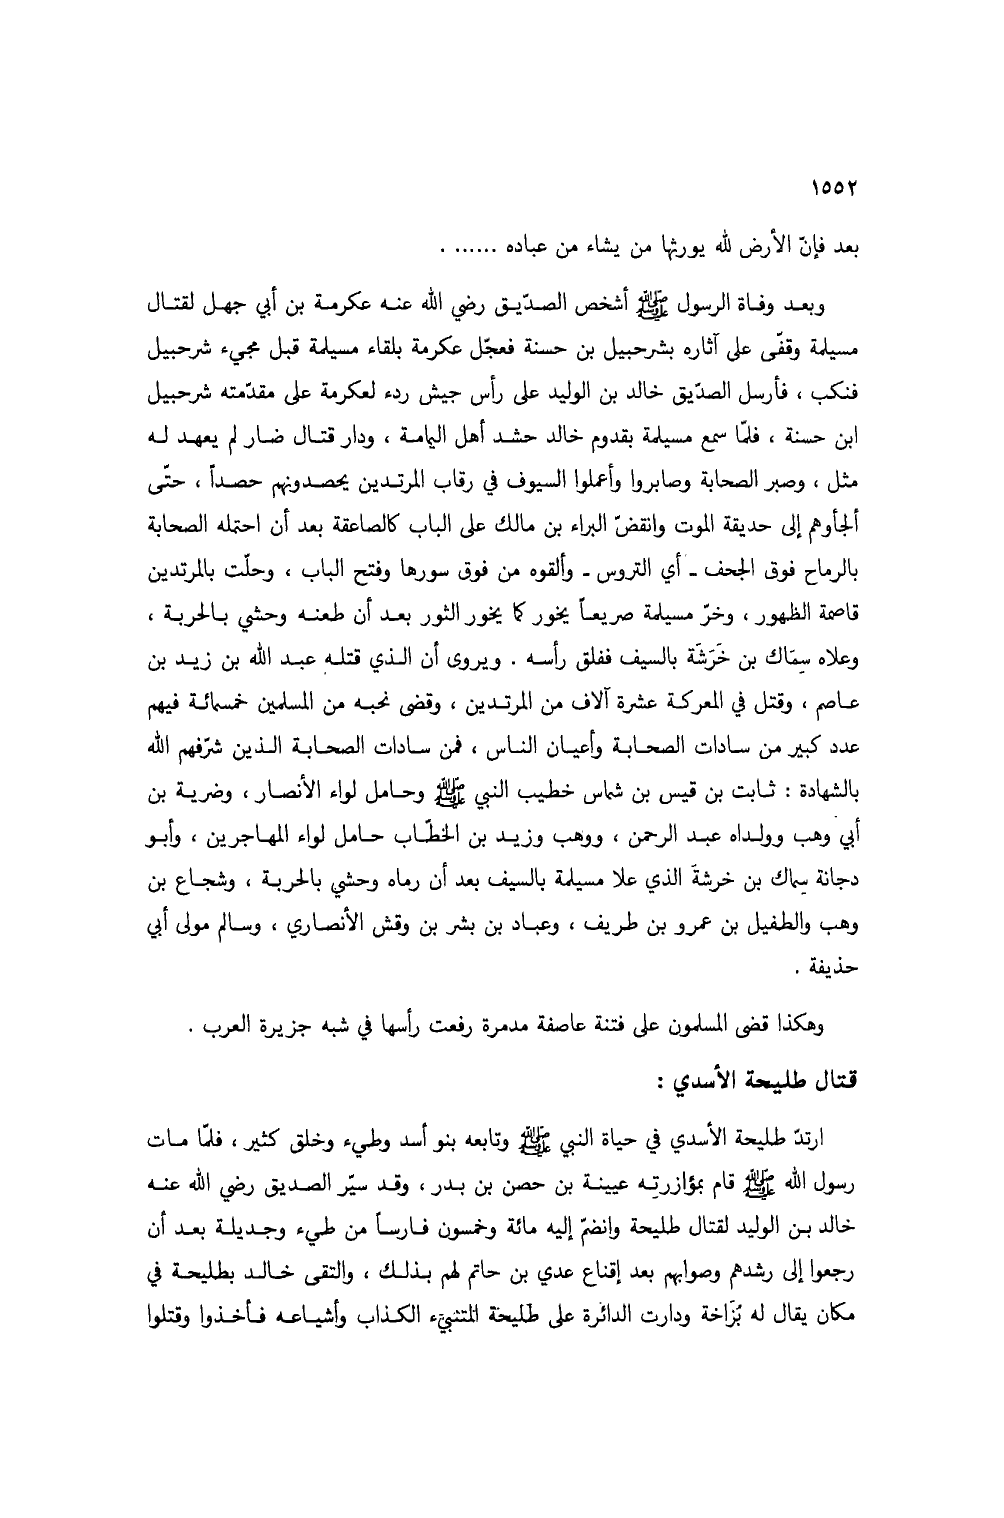 ١٥٥٢
بعد فإنّ الأرض لله يورثها من يشاء من عباده ...... .
وبعد وفاة الرسول ﷺ أشخص الصدّيق رضي الله عنه عكرمة بن أبي جهل لقتال
مسيلمة وقفّى على آثاره بشرحبيل بن حسنة فعجّل عكرمة بلقاء مسيلمة قبل مجيء شرحبيل
فنكب ، فأرسل الصدّيق خالد بن الوليد على رأس جيش ردء لعكرمة على مقدّمته شرحبيل
ابن حسنة ، فلمّا سمع مسيلمة بقدوم خالد حشد أهل اليمامة ، ودار قتال ضار لم يعهد له
مثل ، وصبر الصحابة وصابروا وأعملوا السيوف في رقاب المرتدين يحصدونهم حصداً ، حتّى
ألجأوهم إلى حديقة الموت وانقضّ البراء بن مالك على الباب كالصاعقة بعد أن احتمله الصحابة
بالرماح فوق الجحف ـ أي التروس ـ وألقوه من فوق سورها وفتح الباب ، وحلّت بالمرتدين
قاصمة الظهور ، وخرّ مسيلمة صريعاً يخور كما يخور الثور بعد أن طعنه وحشي بالحربة ،
وعلاه سِمَاك بن خَرَشَة بالسيف ففلق رأسه . ويروى أن الذي قتله عبد الله بن زيد بن
عاصم ، وقتل في المعركة عشرة آلاف من المرتدين ، وقضى نحبه من المسلمين خمسمائة فيهم
عدد كبير من سادات الصحابة وأعيان الناس ، فمن سادات الصحابة الذين شرّفهم الله
بالشهادة : ثابت بن قيس بن شماس خطيب النبي ﷺ وحامل لواء الأنصار ، وضربة بن
أبي وهب وولداه عبد الرحمن ، ووهب وزيد بن الخطّاب حامل لواء المهاجرين ، وأبو
دجانة سماك بن خرشةَ الذي علا مسيلمة بالسيف بعد أن رماه وحشي بالحربة ، وشجاع بن
وهب والطفيل بن عمرو بن طريف ، وعباد بن بشر بن وقش الأنصاري ، وسالم مولى أبي
حذيفة .
وهكذا قضى المسلمون على فتنة عاصفة مدمرة رفعت رأسها في شبه جزيرة العرب .
قتال طليحة الأسدي :
ارتدّ طليحة الأسدي في حياة النبي ﷺ وتابعه بنو أسد وطيء وخلق كثير ، فلمّا مات
رسول الله ﷺ قام بمؤازرته عيينة بن حصن بن بدر ، وقد سيّر الصديق رضي الله عنه
خالد بن الوليد لقتال طليحة وانضمّ إليه مائة وخمسون فارساً من طيء وجديلة بعد أن
رجعوا إلى رشدهم وصوابهم بعد إقناع عدي بن حاتم لهم بذلك ، والتقى خالد بطليحة في
مكان يقال له بُزَاخة ودارت الدائرة على طليحة المتنبيء الكذاب وأشياعه فأخذوا وقتلوا